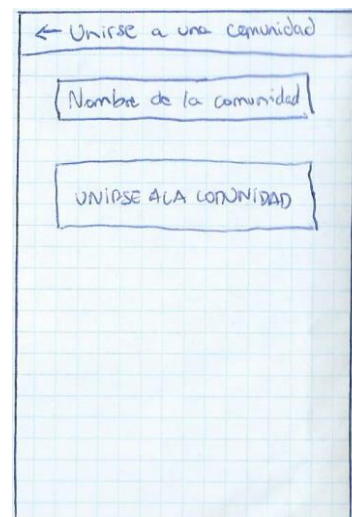 ← Unirse a una comunidad
Nombre de la comunidad
UNIRSE A LA COMUNIDAD